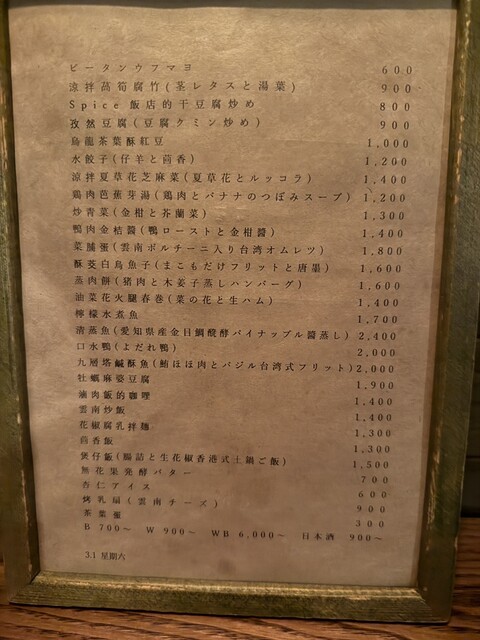 ピータンウフマヨ 600
涼拌萵筍腐竹(茎レタスと湯葉) 900
Spice飯店的干豆腐炒め 800
孜然豆腐(豆腐クミン炒め) 900
烏龍茶葉酥紅豆 1,000
水餃子(仔羊と茴香) 1,200
涼拌夏草花芝麻菜(夏草花とルッコラ) 1,400
鶏肉芭蕉芽湯(鶏肉とバナナのつぼみスープ) 1,200
炒青菜(金柑と芥蘭菜) 1,300
鴨肉金桔醬(鴨ローストと金柑醬) 1,400
菜脯蛋(雲南ポルチーニ入り台湾オムレツ) 1,800
酥茭白烏魚子(まこもだけフリットと唐墨) 1,600
蒸肉餅(猪肉と木姜子蒸しハンバーグ) 1,600
油菜花火腿春巻(菜の花と生ハム) 1,400
檸檬水煮魚 1,700
清蒸魚(愛知県産金目鯛醗酵パイナップル醬蒸し) 2,400
口水鴨(よだれ鴨) 2,000
九層塔鹹酥魚(鮪ほほ肉とバジル台湾式フリット) 2,000
牡蠣麻婆豆腐 1,900
滷肉飯的咖哩 1,400
雲南炒飯 1,400
花椒腐乳拌麺 1,300
茴香飯 1,300
煲仔飯(腸詰と生花椒香港式土鍋ご飯) 1,500
無花果発酵バター 700
杏仁アイス 600
烤乳扇(雲南チーズ) 900
茶葉蛋 300
B 700〜 W 900〜 WB 6,000〜 日本酒 900〜
3.1 星期六